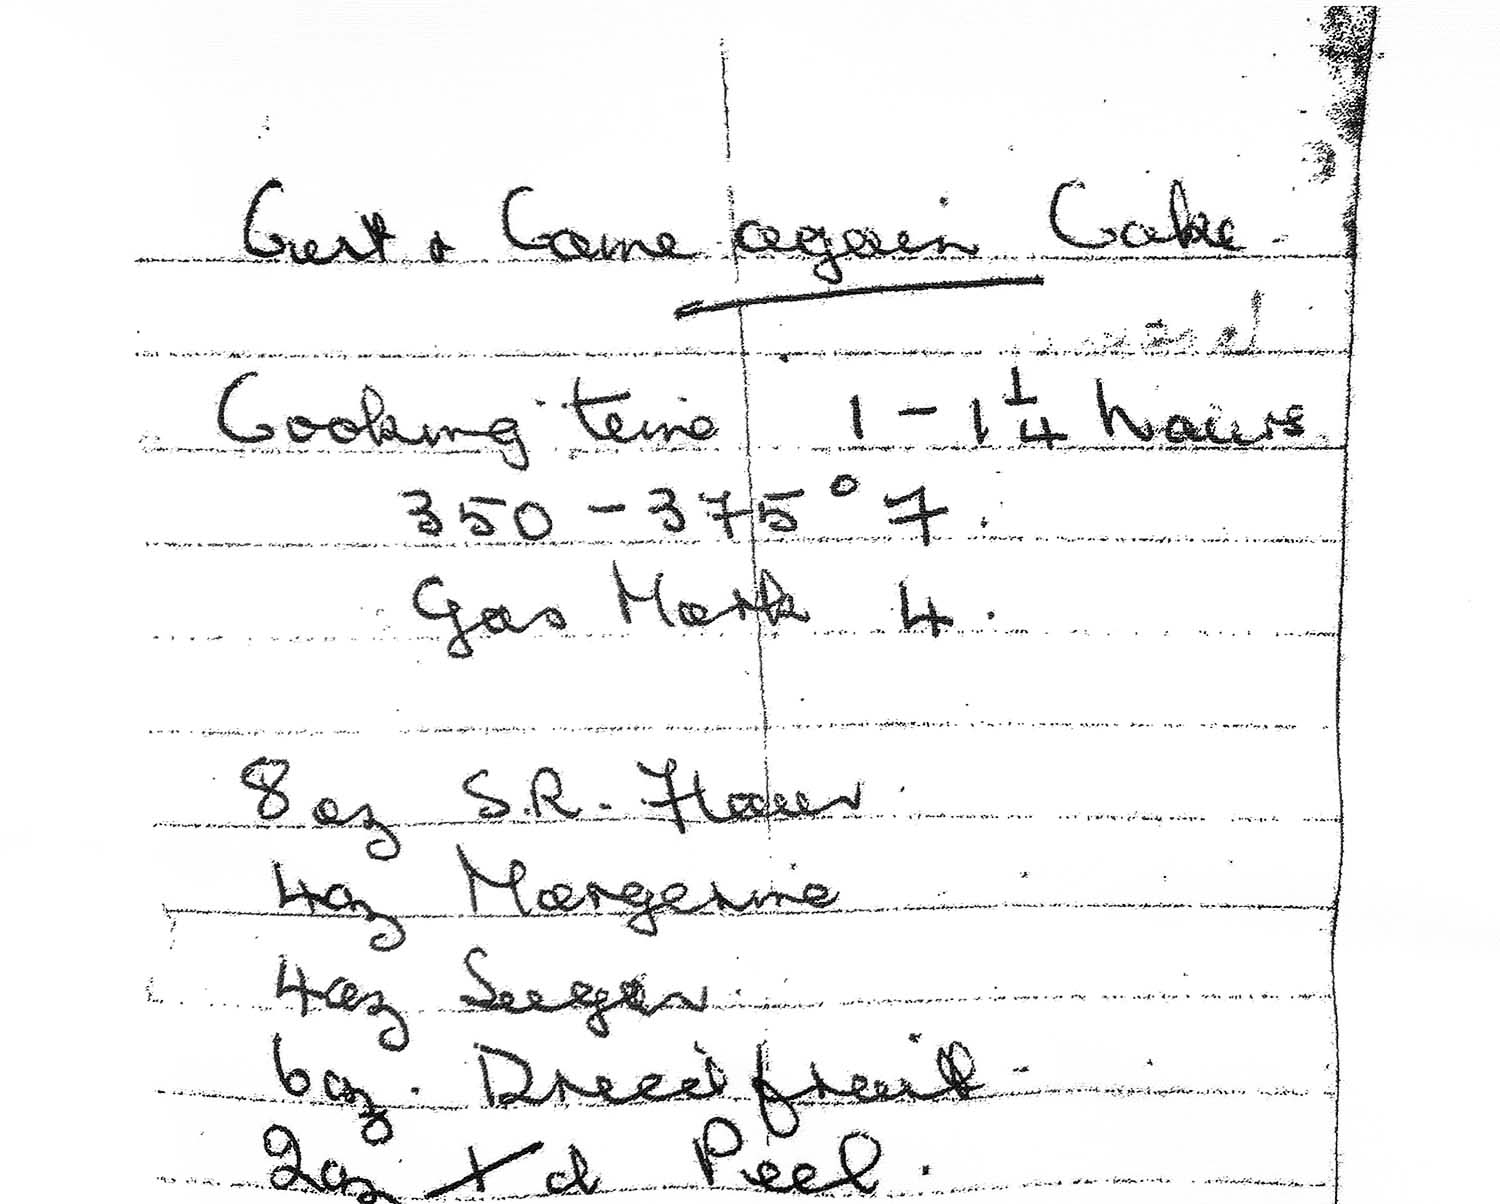 Cut & Come again Cake
Cooking time 1 - 1 1/4 hours
350 - 375° F.
Gas Mark 4.
8 oz S.R. Flour
4oz Margerine
4oz Sugar
6oz. Dried fruit
2oz X d Peel.